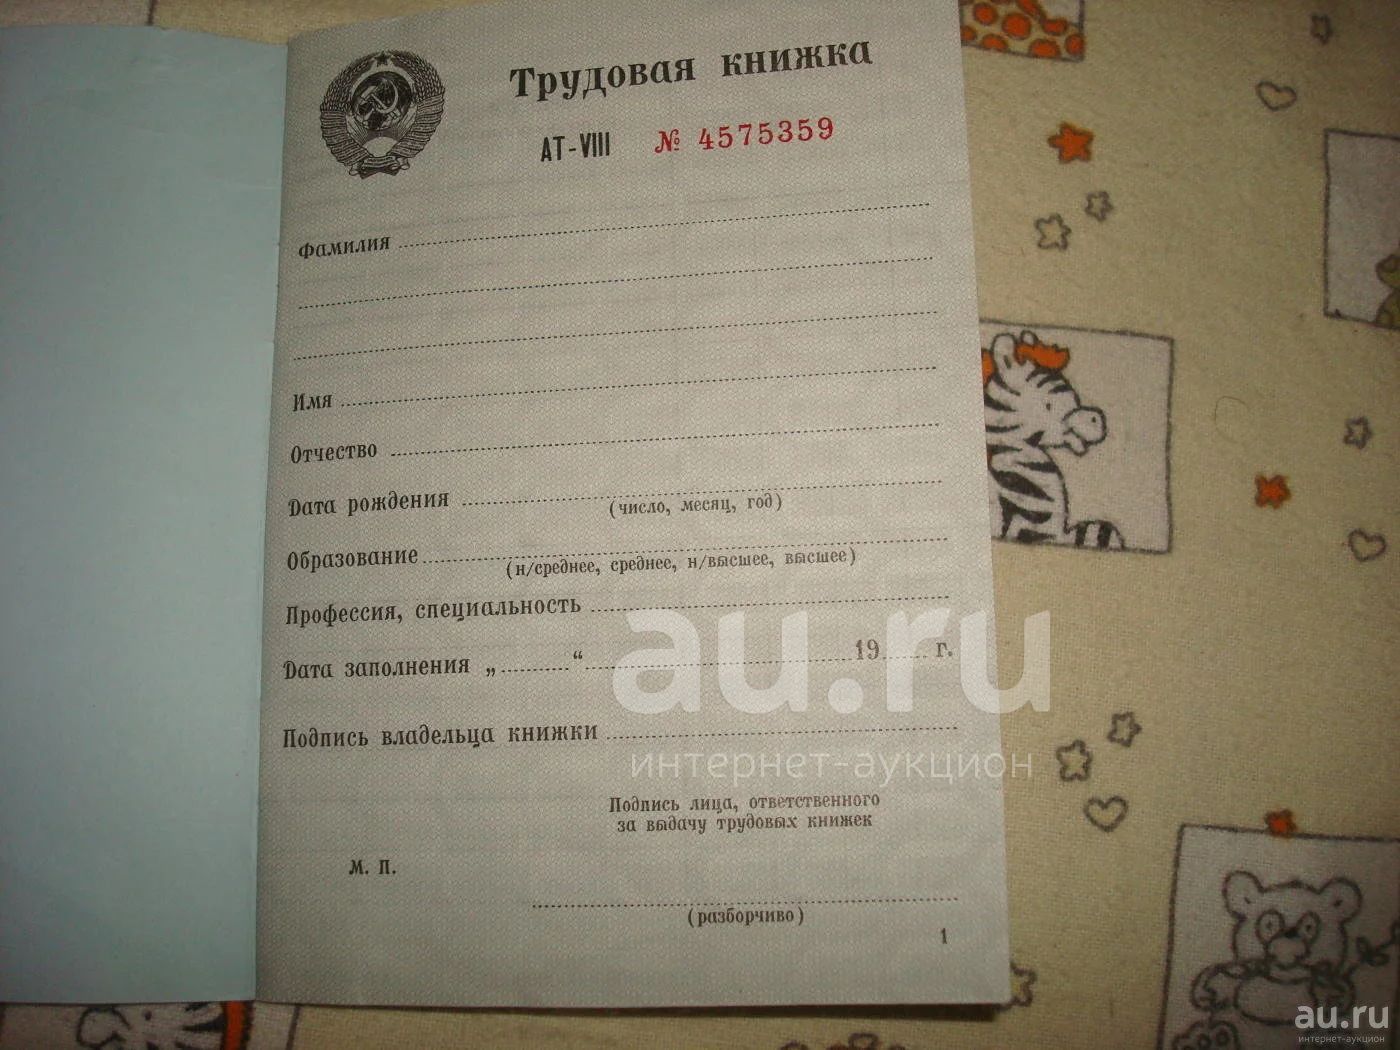 Трудовая книжка
АТ-VIII № 4575359
Фамилия
Имя
Отчество
Дата рождения
(число, месяц, год)
Образование
(н/среднее, среднее, н/высшее, высшее)
Профессия, специальность
Дата заполнения „ “ 19 г.
Подпись владельца книжки
Подпись лица, ответственного
за выдачу трудовых книжек
М. П.
(разборчиво)
1
au.ru
интернет-аукцион
au.ru
интернет-аукцион